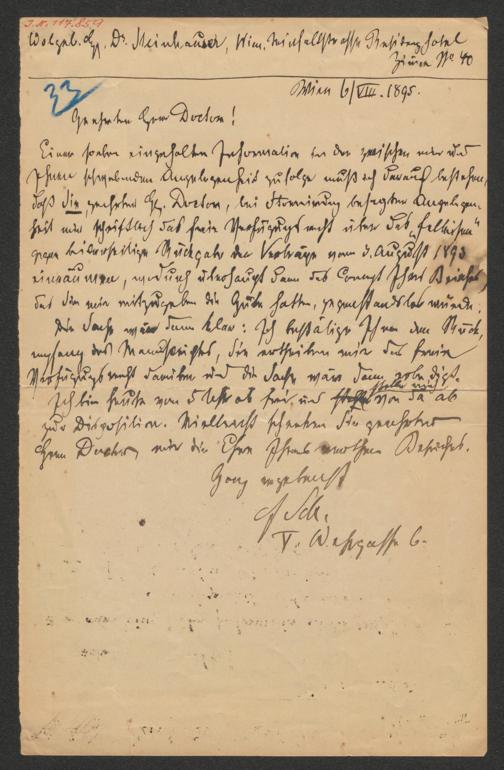 J.N. 117.859
Wolgeb. H. Dr. Steinhauser, Wien,
Zimmer No 40
33
Wien 6/VIII. 1895.
Geehrter Herr Doctor!
Einer soeben eingeholten Information in der zwischen mir und
Ihnen schwebenden Angelegenheit zufolge muß ich darauf bestehen,
daß Sie, geehrter H. Doctor, bei Stornirung besagter Angelegen-
heit mir schriftlich das freie Verfügungsrecht über das
gegen beiderseitige Rückgabe der Verträge vom 5. August 1893
einräumen, wodurch überhaupt dann das Concept Ihres Briefes,
das Sie mir mitzugeben die Güte hatten, gegenstandslos würde.
Die Sache wäre dann klar: Ich bestätige Ihnen den Rück-
empfang des Manuscriptes, Sie ertheilen mir das freie
Verfügungsrecht darüber und die Sache wäre dann erledigt.
Ich bin heute von 5 Uhr ab frei, und stelle mich von da ab
zur Disposition. Vielleicht schenken Sie geehrter
Herr Doctor, mir die Ehre Ihres werthen Besuches.
Ganz ergebenst
Sch.
V. Wehrgasse 6.